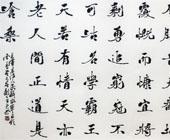 覆慨而慷宜將
剩勇追窮寇不
可沽名學霸王
天若有情天亦
老人間正道是
滄桑